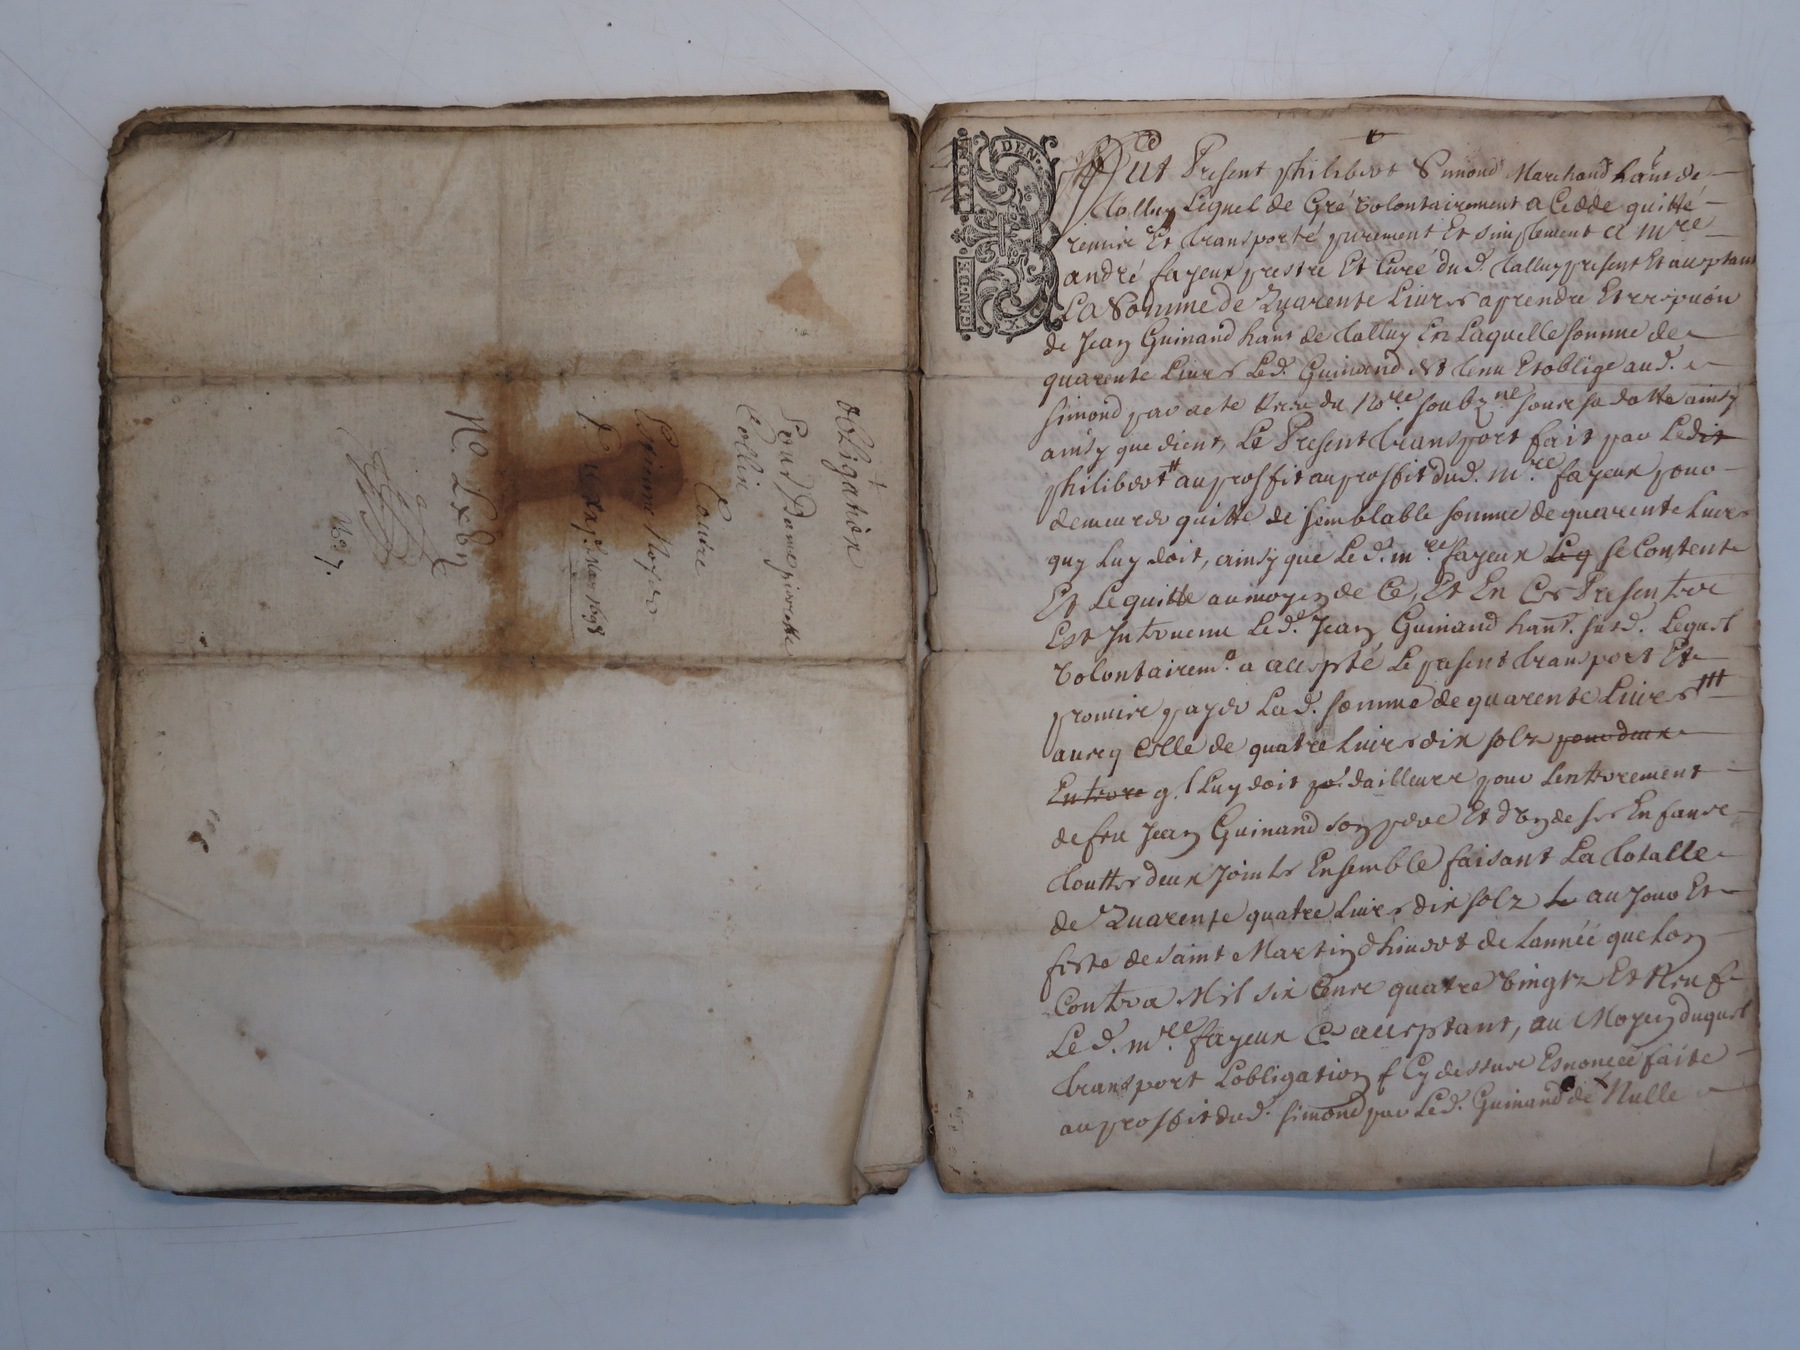 obligation
pour Dame pierrette
Collin
Contre
Estienne
1698
No. Lxbn
1697.
GEN. DE
DEN.
Fut Present philibert Simond Marchand hant de
talluy Lequel de Gré volontairement a Ceddé quitté
remise Et transporté purement Et simplement a mre
andré fayeux prestre Et Curé dud. talluy present Et acceptant
La Somme de Quarente Livres aprendre Et recepvoir
de Jean Guinand hant de talluy En Laquelle somme de
quarente Livres Led. Guinand Est tenu Et oblige aud.
Simond par acte Receu du Nore. soubzne soure sa datte ainsy
ainsy que dient, Le Present transport fait par Ledit
philibert au proffit au proffit dud. mre fayeux pour
demeurer quitte de semblable somme de quarente Livres
quy Luy doit, ainsy que Led. mre fayeux Leq se Contente
Et Le quitte au moyen de Ce, Et En Ces Presentes
Est Intervenue Led. Jean Guinand hant. susd. Lequel
volontairemt. a accepté Le present transport Et
promire payer Lad. somme de quarente Livres
aureq Celle de quatre Livres dix solz pour deux
Enterre q.l Luy doit po. dailleurs pour Lenterrement
de feu Jean Guinand son pere Et d'un de ses Enfans
touttes deux Jointes Ensemble faisant La totalle
de Quarente quatre Livres dix solz Le au Jour Et
feste de saint Martin dhivert de Lannée que Lon
Contera Mil six Cens quatre vingtz Et Neuf
Led. mre. fayeux Ce acceptant, au Moyen duquel
transport Lobligation Cy dessus Esnoncée faite
au proffit dud. Simond par Led. Guinand de Nulle